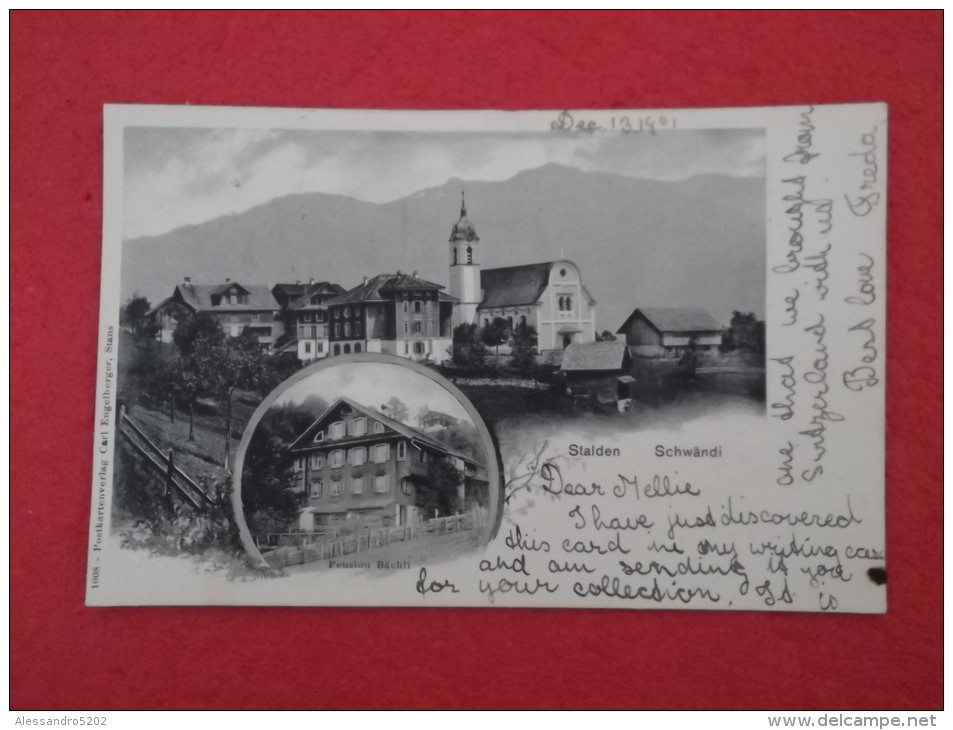 Dec. 13 1901
Stalden Schwändi
Dear Nellie
I have just discovered
this card in my writing case
and am sending it you
for your collection. It is
one that we brought from
Switzerland with us
Best love Freda
Pension Bächli
1008 - Postkartenverlag Carl Engelberger, Stans
Alessandro5202
www.delcampe.net